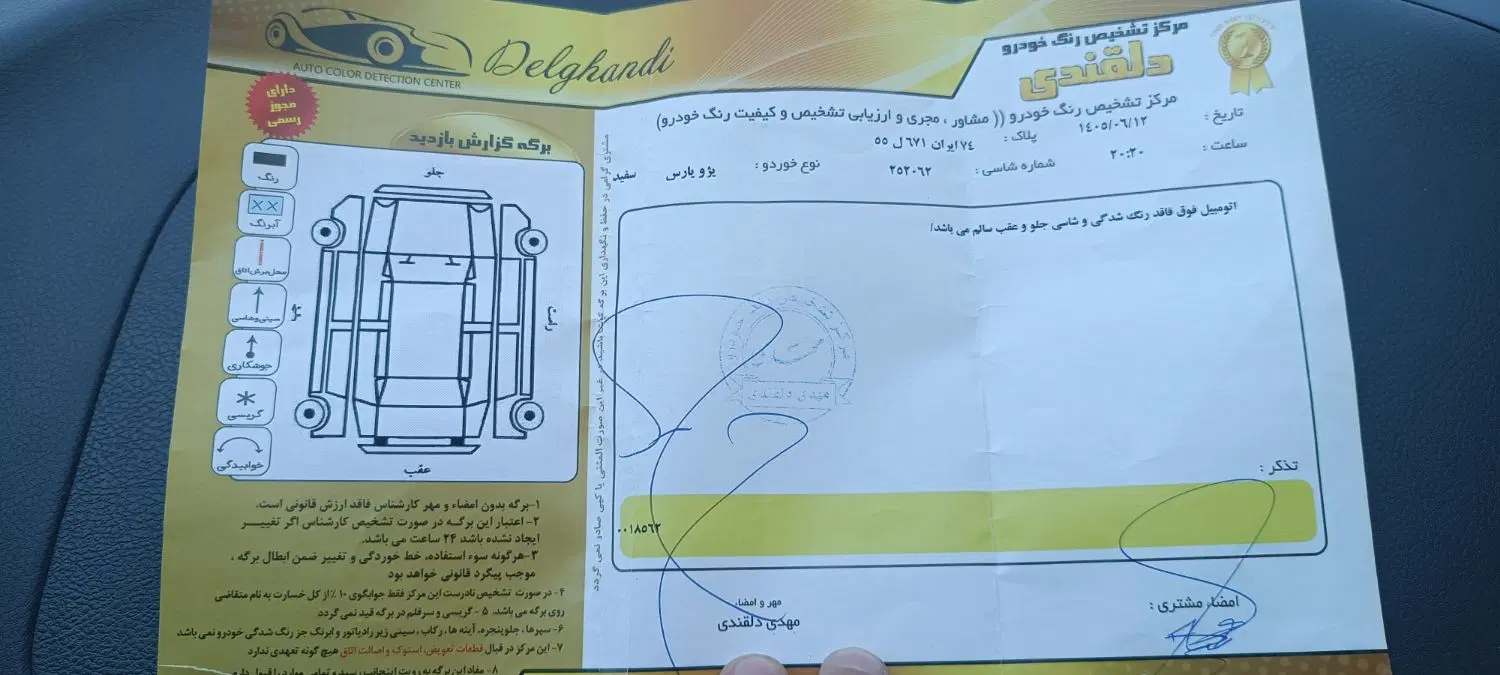 Delghandi
AUTO COLOR DETECTION CENTER
مرکز تشخیص رنگ خودرو
دلقندی
مرکز تشخیص رنگ خودرو (( مشاور ، مجری و ارزیابی تشخیص و کیفیت رنگ خودرو)
تاریخ :
۱۴۰۵/۰۶/۱۲
پلاک :
۷۴ ایران ۶۷۱ ل ۵۵
ساعت :
۲۰:۲۰
شماره شاسی :
۲۵۲۰۶۲
نوع خوردو :
پژو پارس
سفید
اتومبیل فوق فاقد رنگ شدگی و شاسی جلو و عقب سالم می باشد/
مرکز تشخیص رنگ خودرو
مهدی دلقندی
تذکر :
۰۰۱۸۵۶۲
مهر و امضاء
مهدی دلقندی
امضاء مشتری :
مشتری گرامی در حفظ و نگهداری این برگه کوشا باشید در غیر این صورت المثنی یا کپی صادر نمی گردد
دارای
مجوز
رسمی
برگه گزارش بازدید
رنگ
آبرنگ
محل برش اتاق
سینی و شاسی
جوشکاری
گریسی
خوابیدگی
جلو
چپ
راست
عقب
۱-برگه بدون امضاء و مهر کارشناس فاقد ارزش قانونی است.
۲- اعتبار این برگه در صورت تشخیص کارشناس اگر تغییر
ایجاد نشده باشد ۲۴ ساعت می باشد.
۳-هرگونه سوء استفاده، خط خوردگی و تغییر ضمن ابطال برگه ،
موجب پیگرد قانونی خواهد بود
۴- در صورت تشخیص نادرست این مرکز فقط جوابگوی ۱۰ ٪ از کل خسارت به نام متقاضی
روی برگه می باشد. ۵ - گریسی و سرقلم در برگه قید نمی گردد
۶- سپرها ، جلوپنجره، آینه ها ، رکاب ، سینی زیر رادیاتور و ابرنگ جز رنگ شدگی خودرو نمی باشد
۷- این مرکز در قبال قطعات تعویض، استوک و اصالت اتاق هیچ گونه تعهدی ندارد
۸- مفاد این برگه به رویت اینجانب رسید و تمامی موارد را قبول دارم